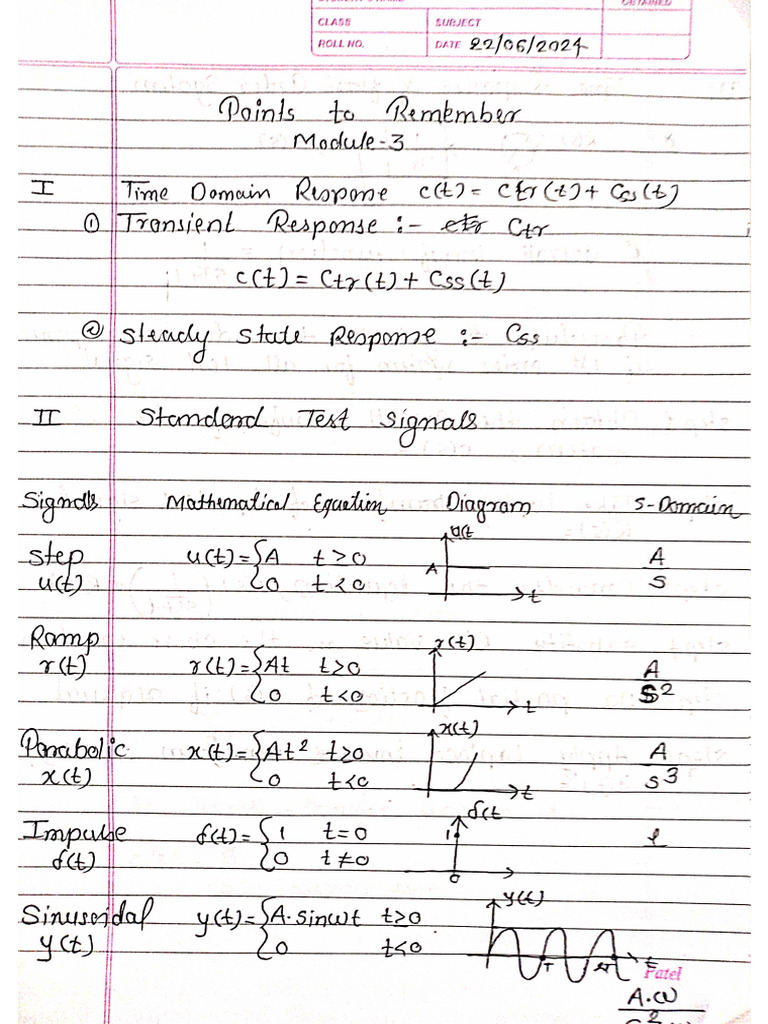 OBTAINED
CLASS SUBJECT
ROLL NO. DATE 22/06/2024
Points to Remember
Module-3
I Time Domain Respone c(t) = Ctr(t) + Css(t)
① Transient Response :- Ctr
c(t) = Ctr(t) + Css(t)
② Steady State Response :- Css
II Standard Test Signals
Signals Mathematical Equation Diagram S-Domain
Step u(t) = { A t ≥ 0 u(t A A
u(t) 0 t < 0 t s
Ramp r(t)
r(t) r(t) = { At t ≥ 0 A
0 t < 0 t S²
Parabolic x(t) = { At² t ≥ 0 x(t) A
x(t) 0 t < 0 t s³
Impulse δ(t) = { 1 t = 0 δ(t 1 1
δ(t) 0 t ≠ 0 0
Sinusoidal y(t) = { A·sinωt t ≥ 0 y(t)
y(t) 0 t < 0 T 2T t
Patel
A·ω